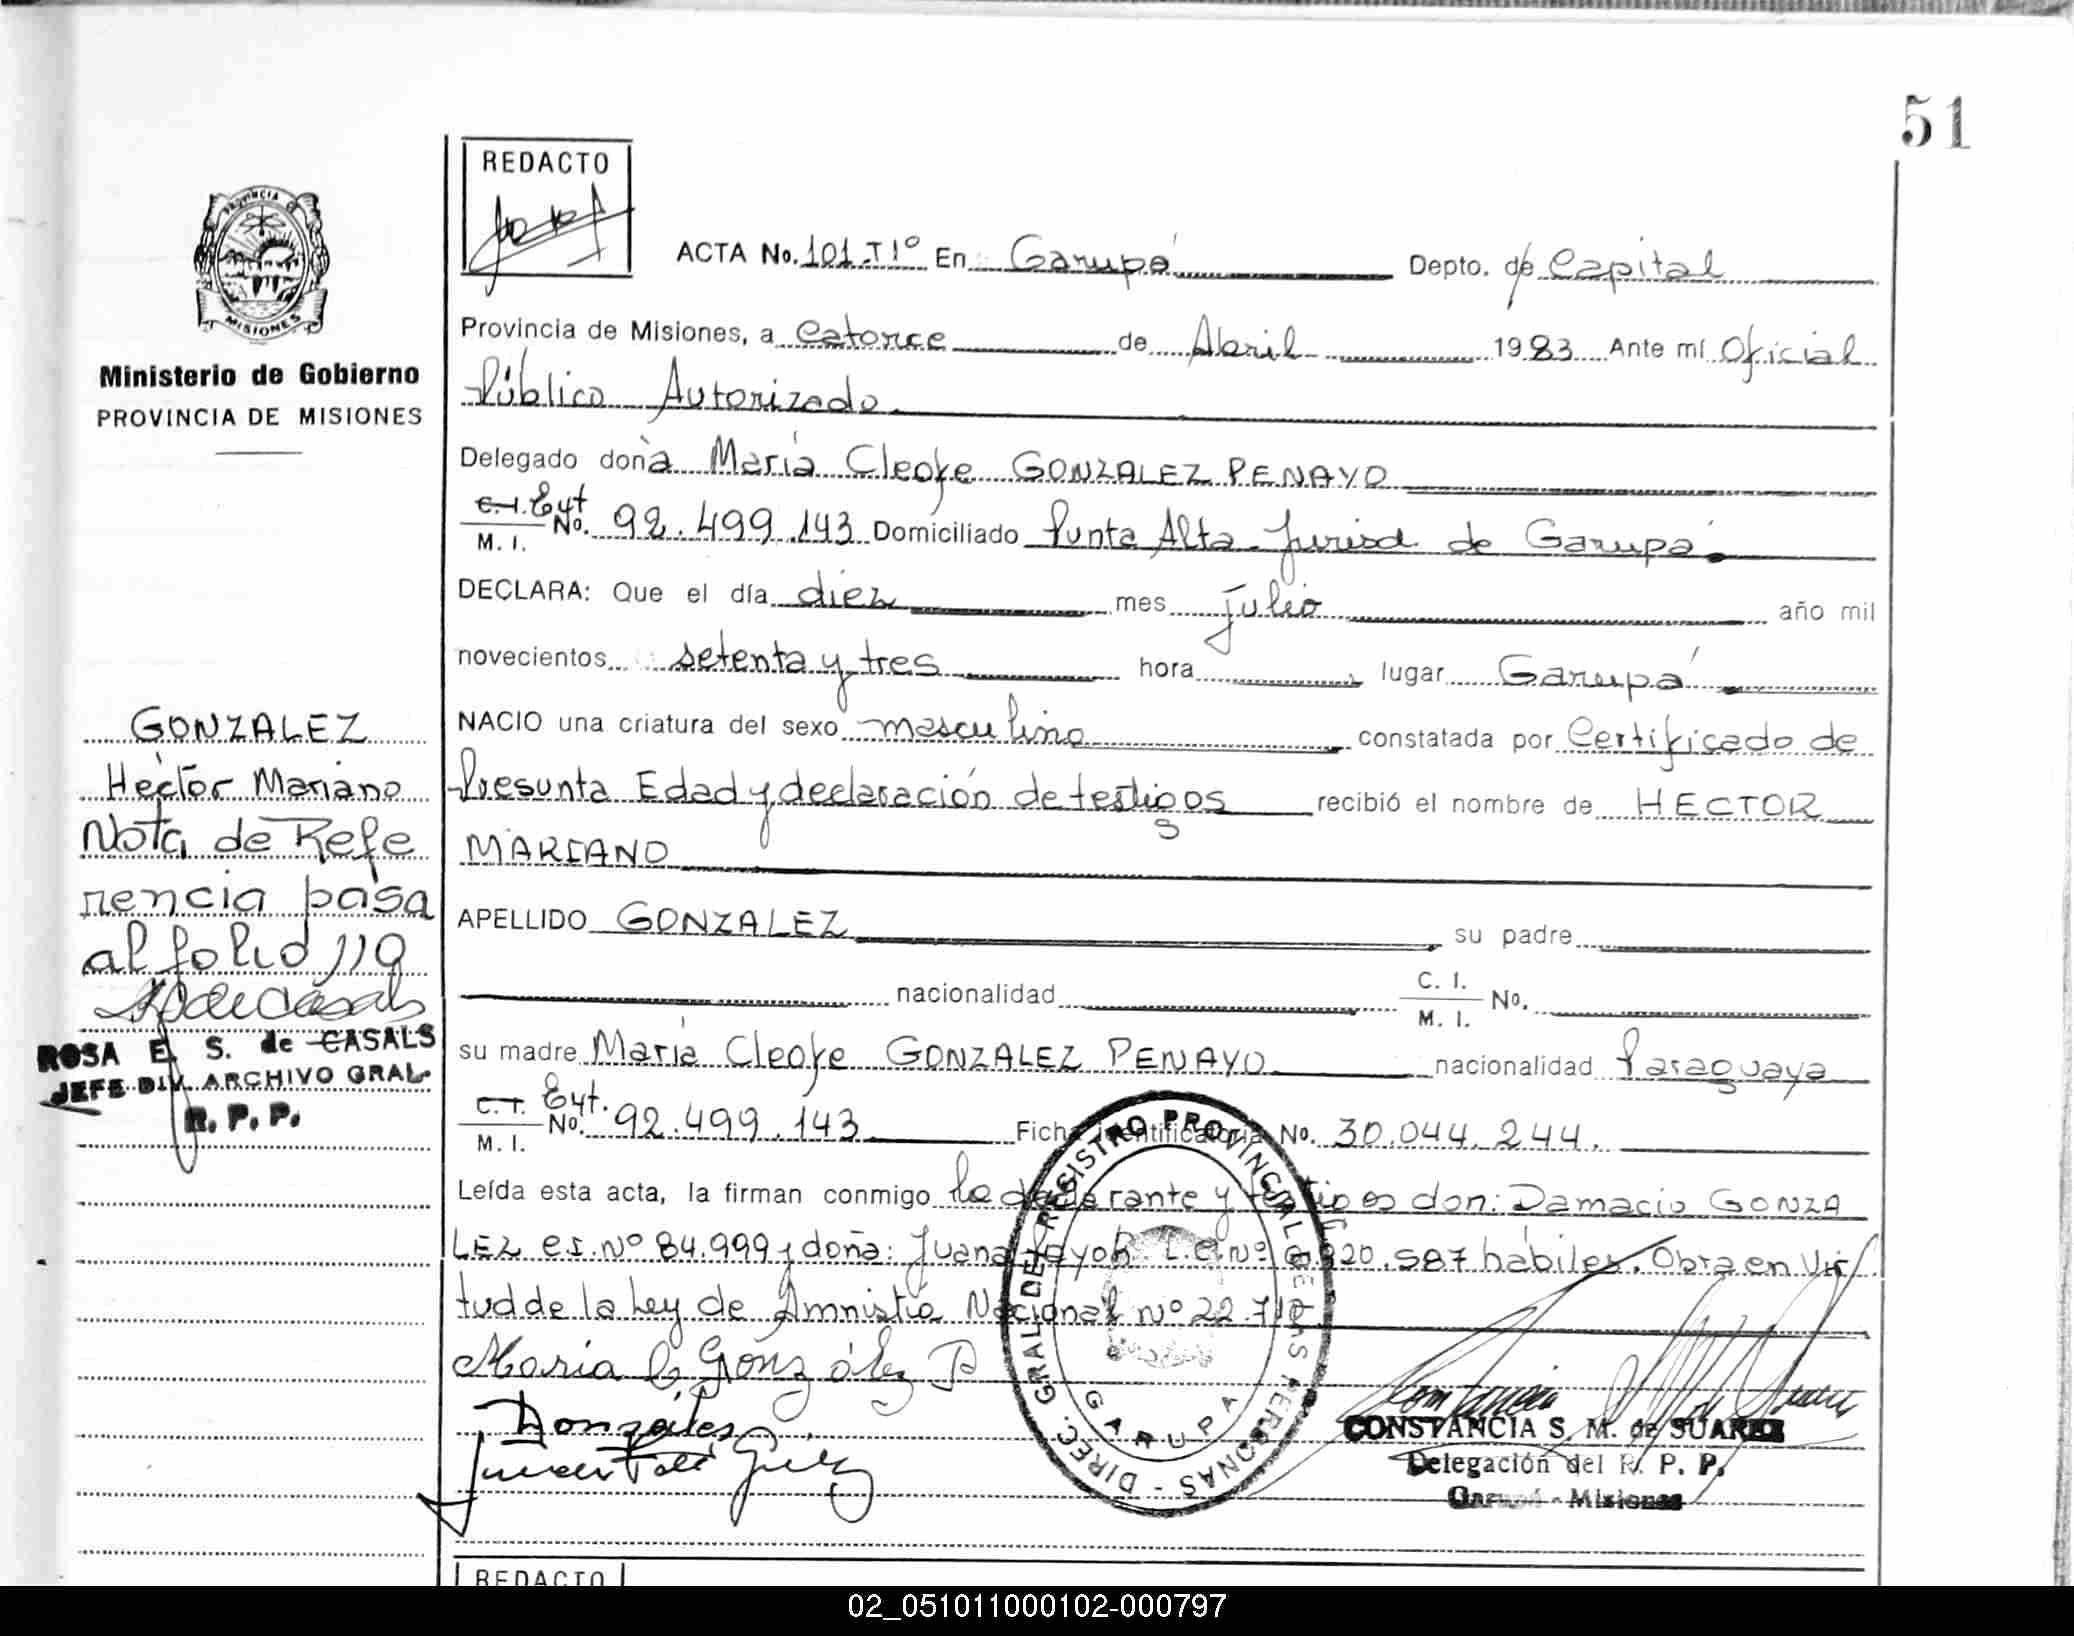 51
REDACTO
ACTA No. 101.T1º En Garupá Depto. de Capital
Provincia de Misiones, a Catorce de Abril 1983 Ante mí Oficial
Público Autorizado
Delegado doña María Cleofe GONZALEZ PENAYO
C.I. Ext
M. I. No. 92.499.143 Domiciliado Punta Alta Jurisd. de Garupá
DECLARA: Que el día diez mes julio año mil
novecientos setenta y tres hora lugar Garupá
NACIO una criatura del sexo masculino constatada por Certificado de
Presunta Edad y declaración de testigos recibió el nombre de HECTOR
MARIANO
APELLIDO GONZALEZ su padre
nacionalidad C. I. M. I. No.
su madre María Cleofe GONZALEZ PENAYO nacionalidad Paraguaya
C. I. Ext.
M. I. No. 92.499.143 Ficha identificatoria No. 30.044.244.
Leída esta acta, la firman conmigo la declarante y testigos don: Damacio GONZA
LEZ C.I. Nº 84.999 y doña: Juana L.C. Nº 587 hábiles. Obra en Vir
tud de la Ley de Amnistía Nacional Nº 22.
María C. González P
González
CONSTANCIA S. M. de SUAREZ
Delegación del R. P. P.
Garupá - Misiones
DIREC. GRAL. DE REGISTRO PROVINCIAL DE LAS PERSONAS -
GARUPA
PROVINCIA DE
MISIONES
Ministerio de Gobierno
PROVINCIA DE MISIONES
GONZALEZ
Hector Mariano
Nota de Refe
rencia pasa
al folio 119
ROSA E. S. de CASALS
JEFE DIV. ARCHIVO GRAL.
R. P. P.
REDACTO
02_051011000102-000797